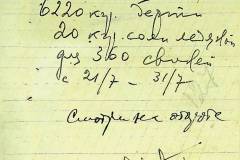 6220 кгр. Берти
20 кгр. соли ледяной
для 360 свиней
с 21/7 – 31/7
Смотри на обороте